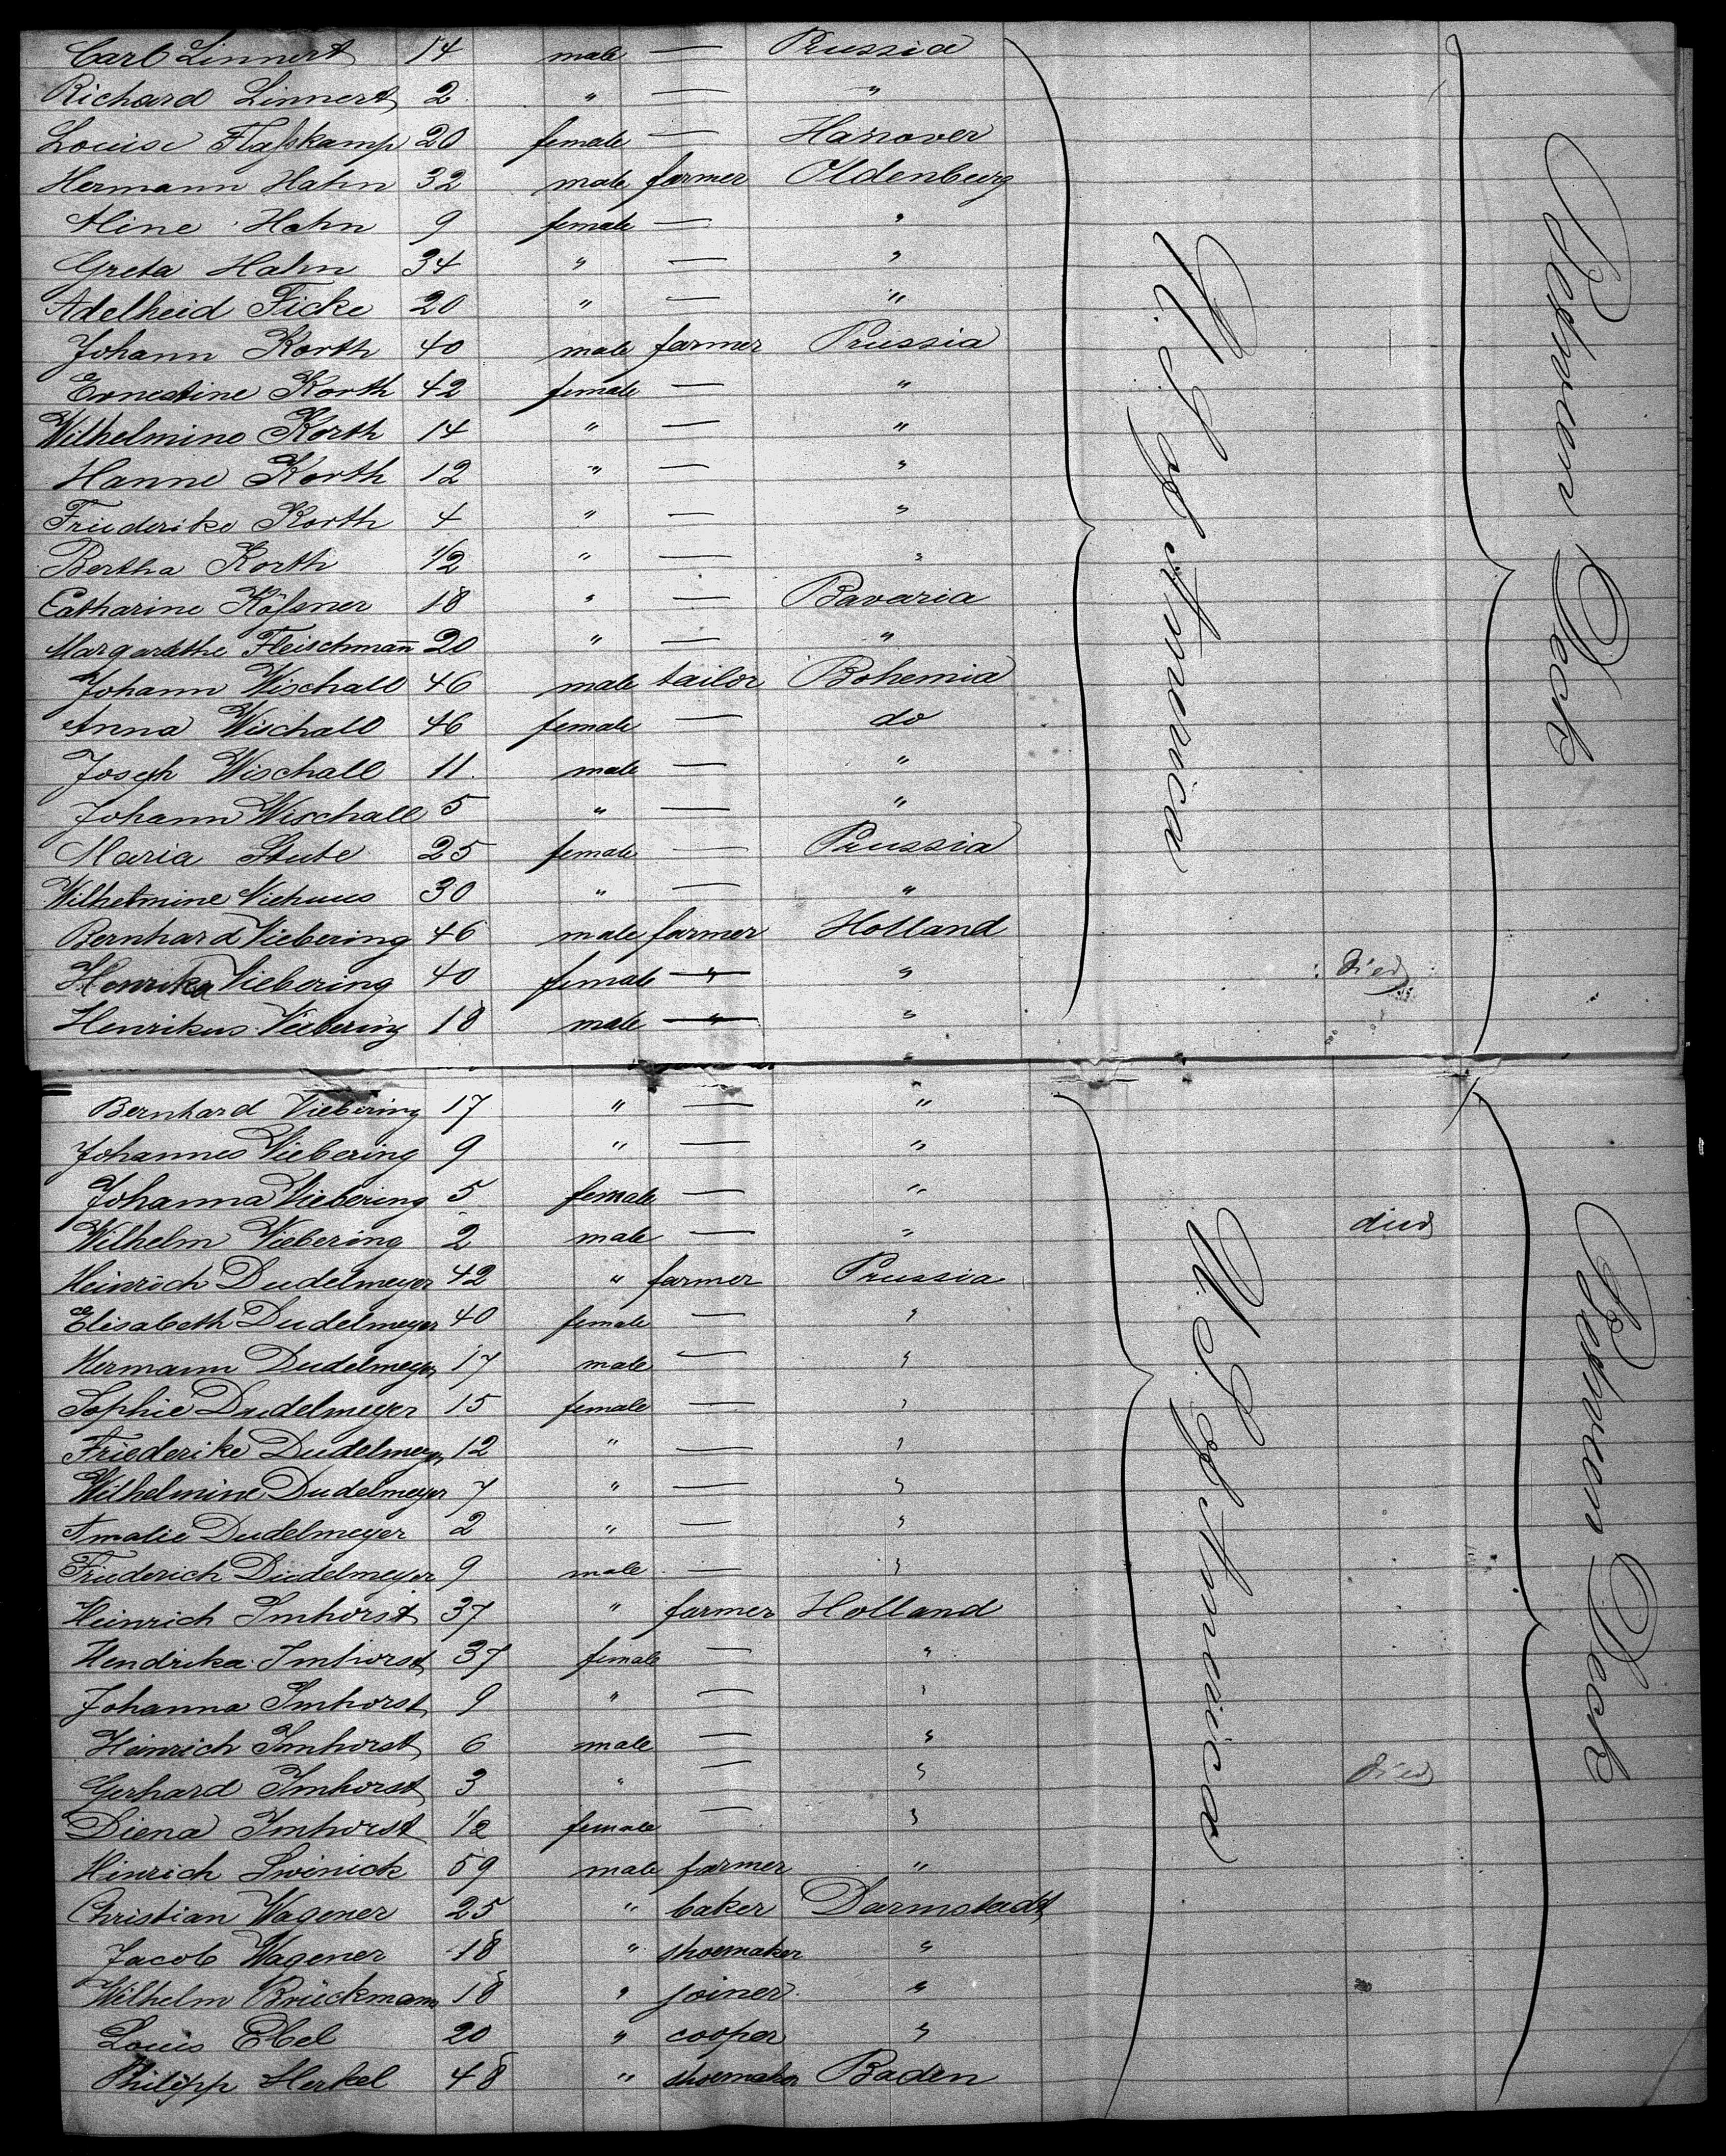 Carl Linnert 14 male — Prussia
Richard Linnert 2 " — "
Louise Flaßkamp 20 female — Hanover
Hermann Hahn 32 male farmer Oldenburg
Aline Hahn 9 female — "
Greta Hahn 34 " — "
Adelheid Ficke 20 " — "
Johann Korth 40 male farmer Prussia
Ernestine Korth 42 female — "
Wilhelmine Korth 14 " — "
Hanne Korth 12 " — "
Friederike Korth 4 " — "
Bertha Korth 1/2 " — "
Catharine Kößner 18 " — Bavaria
Margarethe Fleischmañ 20 " — "
Johann Wischall 46 male tailor Bohemia
Anna Wischall 46 female — do
Joseph Wischall 11 male — "
Johann Wischall 5 " — "
Maria Stute 25 female — Prussia
Wilhelmine Viehues 30 " — "
Bernhard Viebering 46 male farmer Holland
Henrika Viebering 40 female — " died
Henrikus Viebering 18 male — "
U. S. of America
Zwischen Deck
Bernhard Viebering 17 " — "
Johannes Viebering 9 " — "
Johanna Viebering 5 female — "
Wilhelm Viebering 2 male — " died
Heinrich Dudelmeyer 42 " farmer Prussia
Elisabeth Dudelmeyer 40 female — "
Hermann Dudelmeyer 17 male — "
Sophie Dudelmeyer 15 female — "
Friederike Dudelmeyer 12 " — "
Wilhelmine Dudelmeyer 7 " — "
Amalie Dudelmeyer 2 " — "
Friederich Dudelmeyer 9 male — "
Heinrich Imhorst 37 " farmer Holland
Hendrika Imhorst 37 female — "
Johanna Imhorst 9 " — "
Heinrich Imhorst 6 male — "
Gerhard Imhorst 3 " — " died
Diena Imhorst 1/2 female — "
Hinrich Lwinick 59 male farmer "
Christian Wagener 25 " baker Darmstadt
Jacob Wagener 18 " shoemaker "
Wilhelm Brückmann 18 " joiner "
Louis Ebel 20 " cooper "
Philipp Herkel 48 " shoemaker Baden
U. S. of America
Zwischen Deck